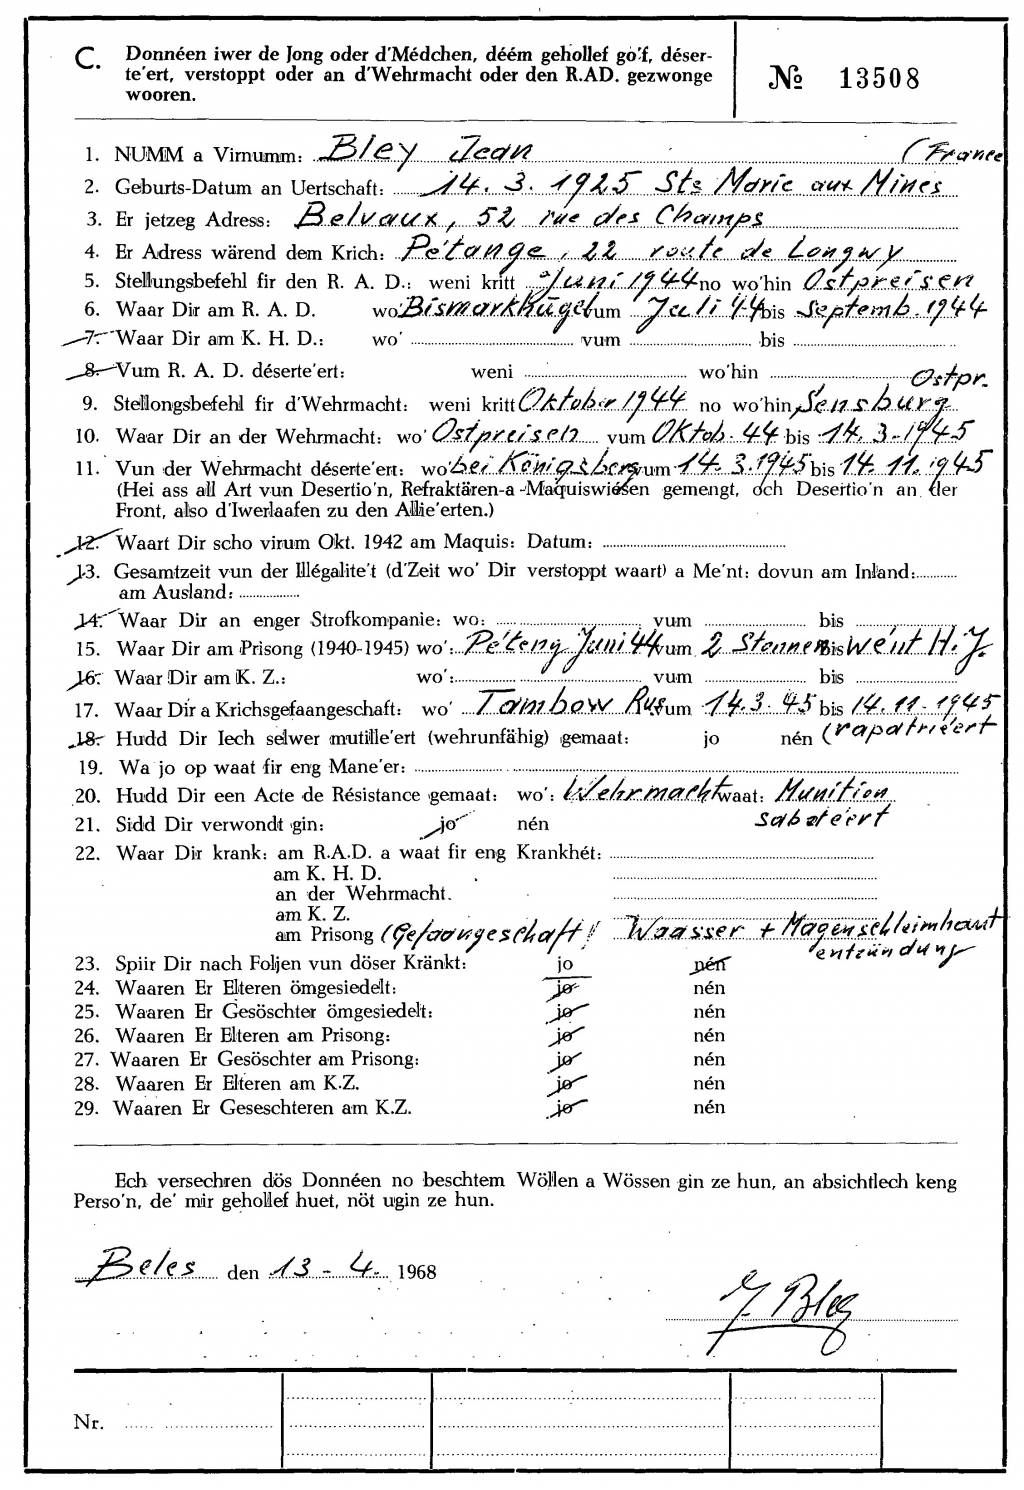 C. Donnéen iwer de Jong oder d'Médchen, déém gehollef go'f, déser-
te'ert, verstoppt oder an d'Wehrmacht oder den R.AD. gezwonge
wooren.
№ 13508
1. NUMM a Virnumm: Bley Jean (France
2. Geburts-Datum an Uertschaft: 14. 3. 1925 Ste Marie aux Mines
3. Er jetzeg Adress: Belvaux, 52 rue des Champs
4. Er Adress wärend dem Krich: Pétange, 22 route de Longwy
5. Stellungsbefehl fir den R. A. D.: weni kritt Juni 1944 no wo'hin Ostpreisen
6. Waar Dir am R. A. D. wo' Bismarkhügel vum Juli 44 bis Septemb. 1944
7. Waar Dir am K. H. D.: wo' vum bis
8. Vum R. A. D. déserte'ert: weni wo'hin
Ostpr.
9. Stellongsbefehl fir d'Wehrmacht: weni kritt Oktober 1944 no wo'hin Sensburg
10. Waar Dir an der Wehrmacht: wo' Ostpreisen vum Oktob. 44 bis 14. 3. 1945
11. Vun der Wehrmacht déserte'ert: wo' bei Königsberg vum 14. 3. 1945 bis 14. 11. 1945
(Hei ass all Art vun Desertio'n, Refraktären-a -Maquiswiesen gemengt, och Desertio'n an der
Front, also d'Iwerlaafen zu den Allie'erten.)
12. Waart Dir scho virum Okt. 1942 am Maquis: Datum:
13. Gesamtzeit vun der Illégalite't (d'Zeit wo' Dir verstoppt waart) a Me'nt: dovun am Inland:
am Ausland:
14. Waar Dir an enger Strofkompanie: wo: vum bis
15. Waar Dir am Prisong (1940-1945) wo': Péteng Juni 44 vum 2 Stonnen bis we'nt H.J.
16. Waar Dir am K. Z.: wo': vum bis
17. Waar Dir a Krichsgefaangeschaft: wo' Tambow Rus vum 14. 3. 45 bis 14. 11. 1945
18. Hudd Dir Iech selwer mutille'ert (wehrunfähig) gemaat: jo nén (rapatrie'ert
19. Wa jo op waat fir eng Mane'er:
20. Hudd Dir een Acte de Résistance gemaat: wo': Wehrmacht waat: Munition
sabote'ert
21. Sidd Dir verwondt gin: jo nén
22. Waar Dir krank: am R.A.D. a waat fir eng Krankhét:
am K. H. D.
an der Wehrmacht.
am K. Z.
am Prisong (Gefaangeschaft) Waasser + Magenschleimhaut
entzündung
23. Spiir Dir nach Foljen vun döser Kränkt: jo nén
24. Waaren Er Elteren ömgesiedelt: jo nén
25. Waaren Er Gesöschter ömgesiedelt: jo nén
26. Waaren Er Elteren am Prisong: jo nén
27. Waaren Er Gesöschter am Prisong: jo nén
28. Waaren Er Elteren am K.Z. jo nén
29. Waaren Er Geseschteren am K.Z. jo nén
Ech versechren dös Donnéen no beschtem Wöllen a Wössen gin ze hun, an absichtlech keng
Perso'n, de' mir gehollef huet, nöt ugin ze hun.
Beles den 13 - 4. 1968
J. Bley
Nr.